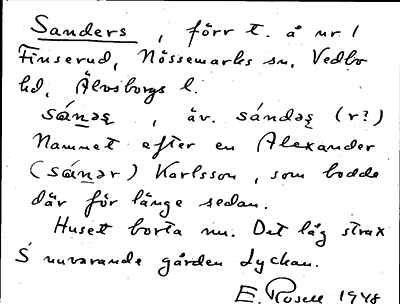 Sanders, förr t. å nr 1
Finserud, Nössemarks sn, Vedbo
hd, Älvsborgs l.
sánəʂ, äv. sándəʂ (r?)
Namnet efter en Alexander
(sánər) Karlsson, som bodde
där för länge sedan.
Huset borta nu. Det låg strax
S nuvarande gården Lyckan.
E. Rosell 1948